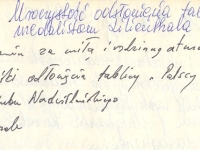 Uroczystość odsłonięcia tab
medalistom Lilienthala
za miłą i rodzinną atmos
odsłonięcia tablicy "Polscy
Nadwiślańskiego